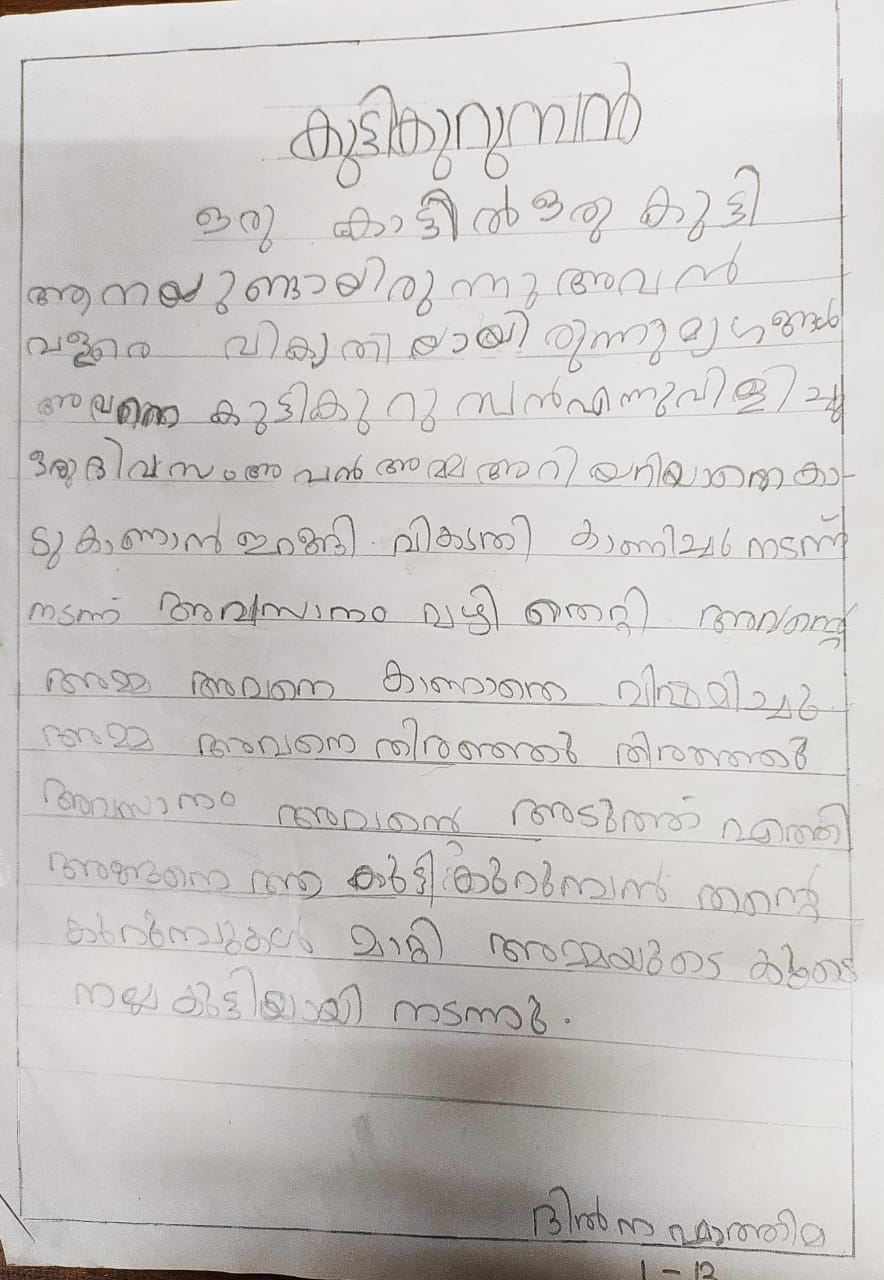 കുട്ടികുറുമ്പൻ
ഒരു കാട്ടിൽ ഒരു കുട്ടി
ആനയുണ്ടായിരുന്നു അവൻ
വളരെ വികൃതിയായിരുന്നു മൃഗങ്ങൾ
അവനെ കുട്ടികുറുമ്പൻ എന്നു വിളിച്ചു
ഒരു ദിവസം അവൻ അമ്മ അറിയാതെ കാ-
ടു കാണാൻ ഇറങ്ങി. വികൃതി കാണിച്ചു നടന്ന്
നടന്ന് അവസാനം വഴി തെറ്റി അവന്റെ
അമ്മ അവനെ കാണാതെ വിഷമിച്ചു.
അമ്മ അവനെ തിരഞ്ഞു തിരഞ്ഞു
അവസാനം അവന്റെ അടുത്ത് എത്തി
അങ്ങനെ ആ കുട്ടികുറുമ്പൻ തന്റെ
കുറുമ്പുകൾ മാറ്റി അമ്മയുടെ കൂടെ
നല്ല കുട്ടിയായി നടന്നു.
ദിൽന ഫാത്തിമ